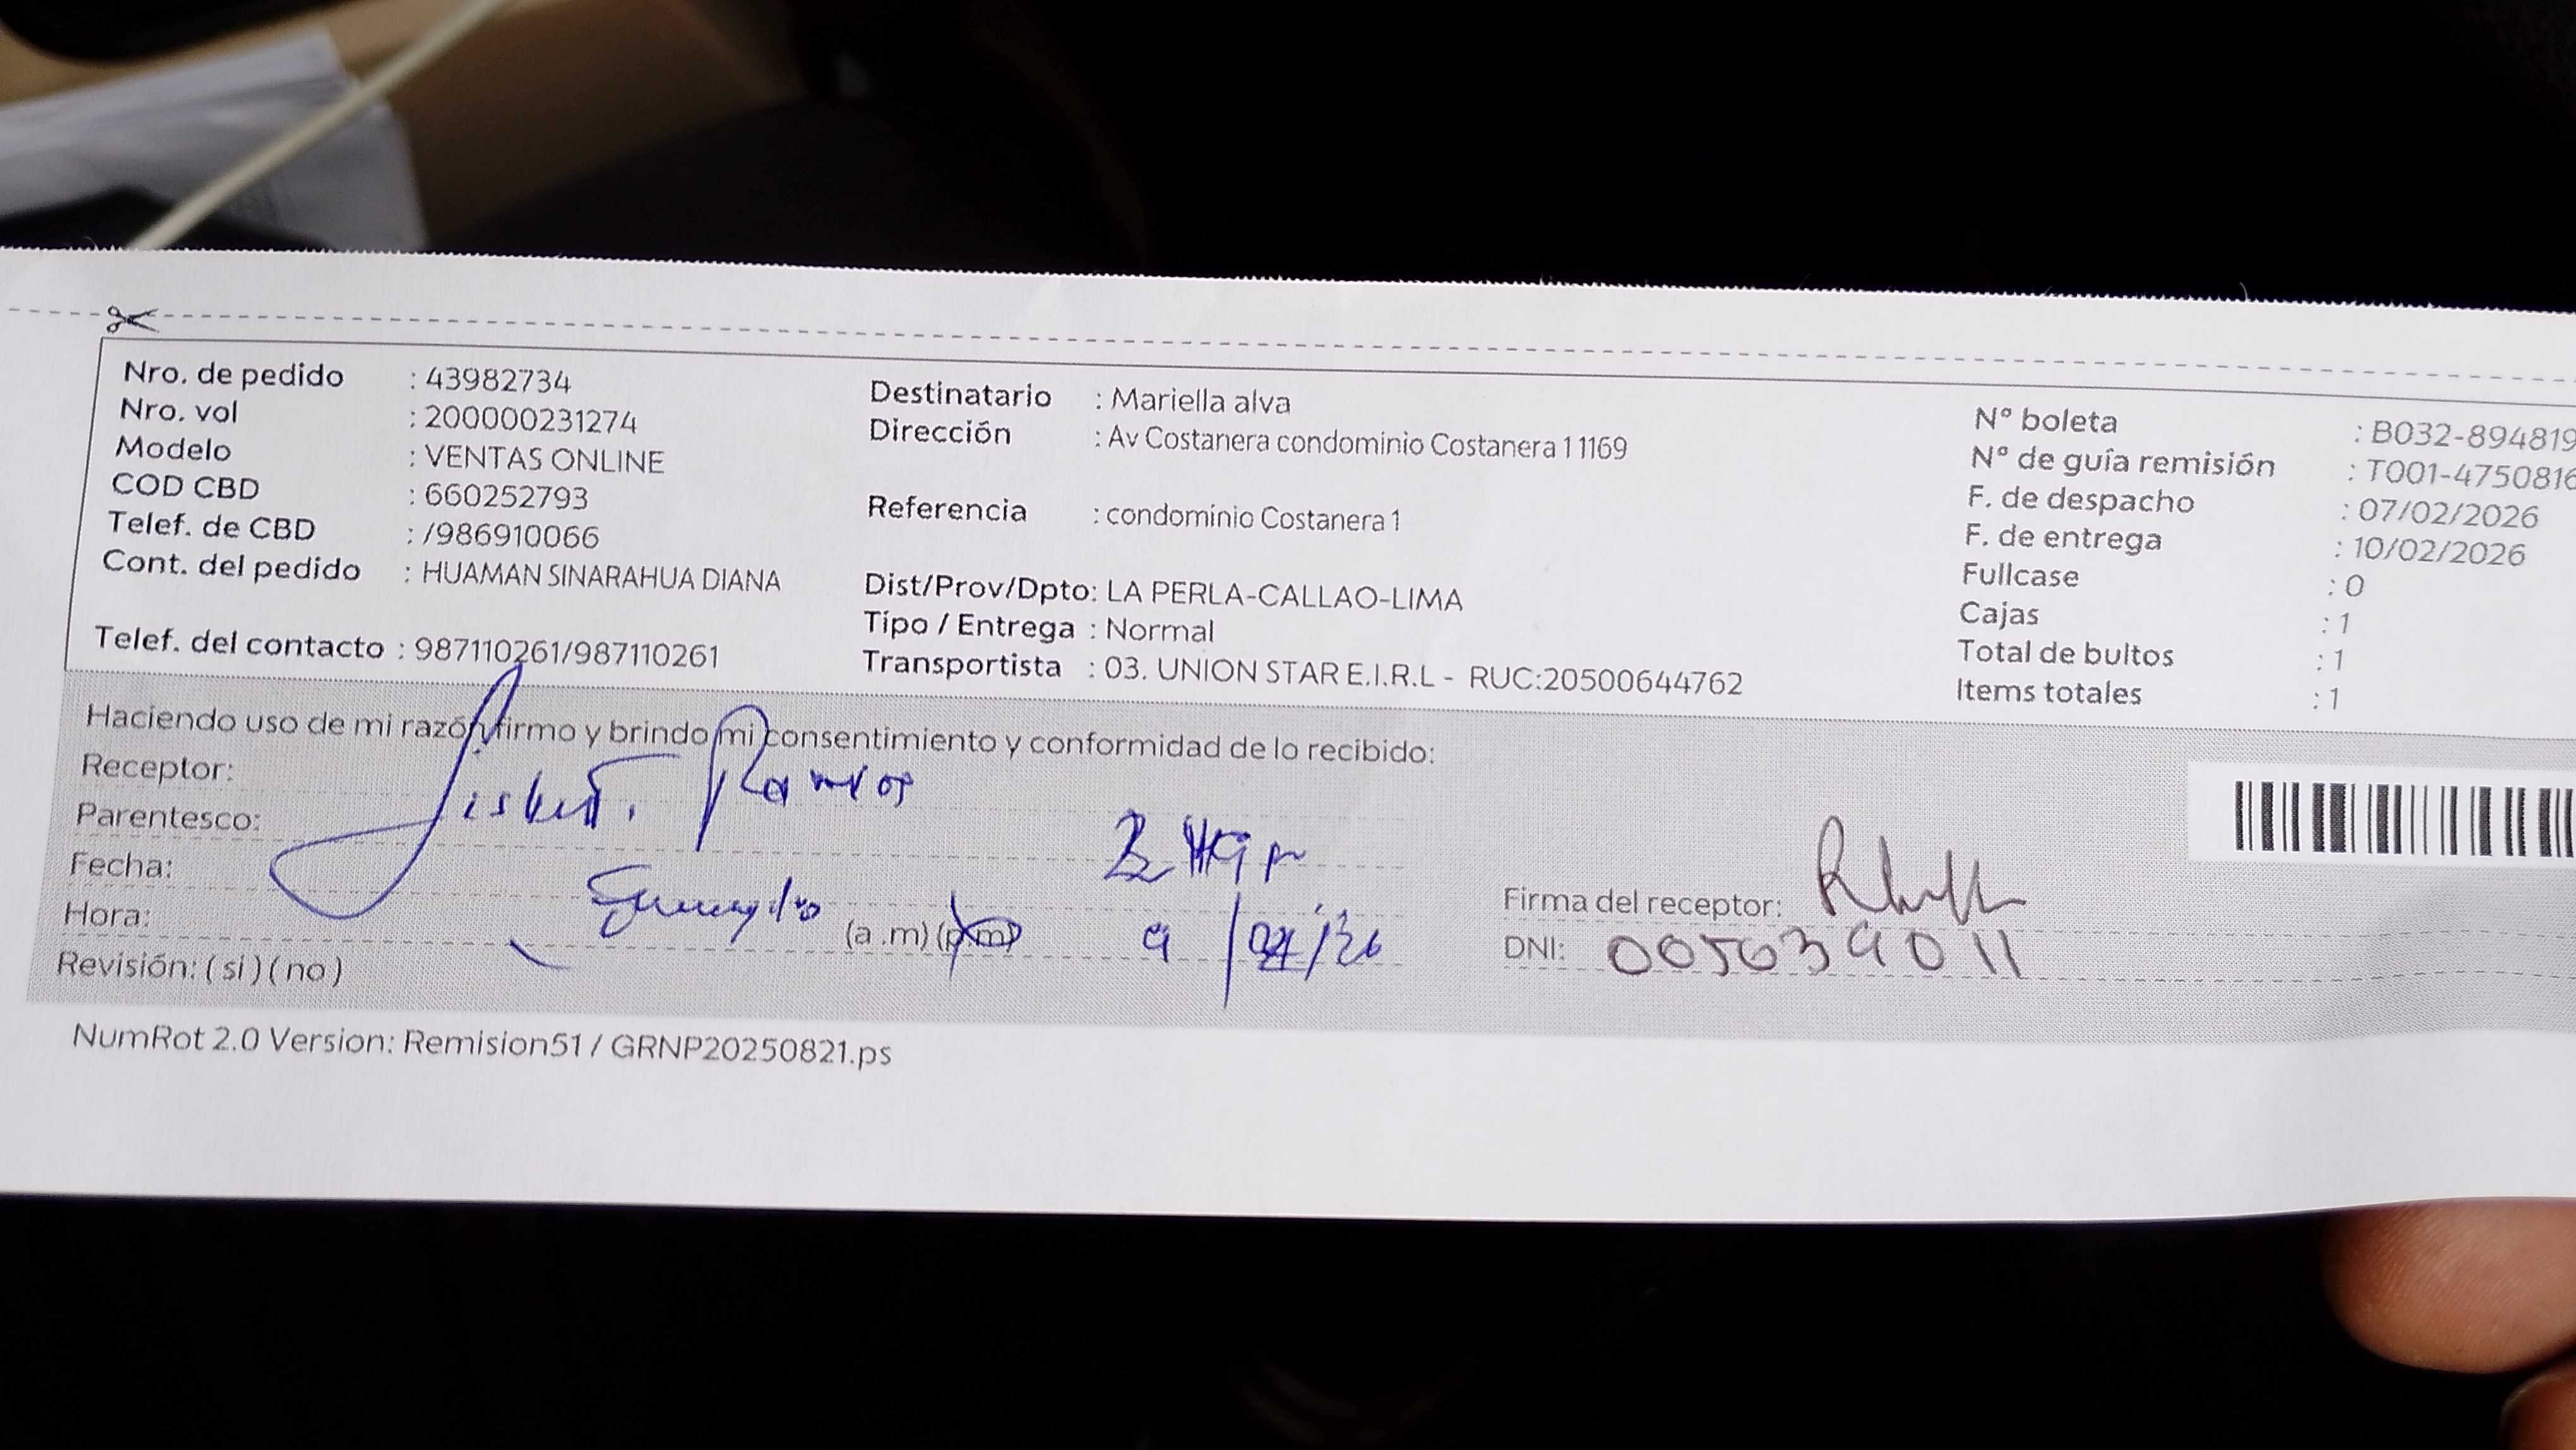 Nro. de pedido : 43982734
Nro. vol : 200000231274
Modelo : VENTAS ONLINE
COD CBD : 660252793
Telef. de CBD : /986910066
Cont. del pedido : HUAMAN SINARAHUA DIANA
Telef. del contacto : 987110261/987110261
Destinatario : Mariella alva
Dirección : Av Costanera condominio Costanera 1 1169
Referencia : condominio Costanera 1
Dist/Prov/Dpto: LA PERLA-CALLAO-LIMA
Tipo / Entrega : Normal
Transportista : 03. UNION STAR E.I.R.L - RUC:20500644762
N° boleta : B032-894819
N° de guía remisión : T001-4750816
F. de despacho : 07/02/2026
F. de entrega : 10/02/2026
Fullcase : 0
Cajas : 1
Total de bultos : 1
Items totales : 1
Haciendo uso de mi razón firmo y brindo mi consentimiento y conformidad de lo recibido:
Receptor: Ramos
Parentesco:
Fecha:
Hora: (a .m) (p.m)
Revisión: ( si ) ( no )
Firma del receptor:
DNI: 005039011
NumRot 2.0 Version: Remision51 / GRNP20250821.ps